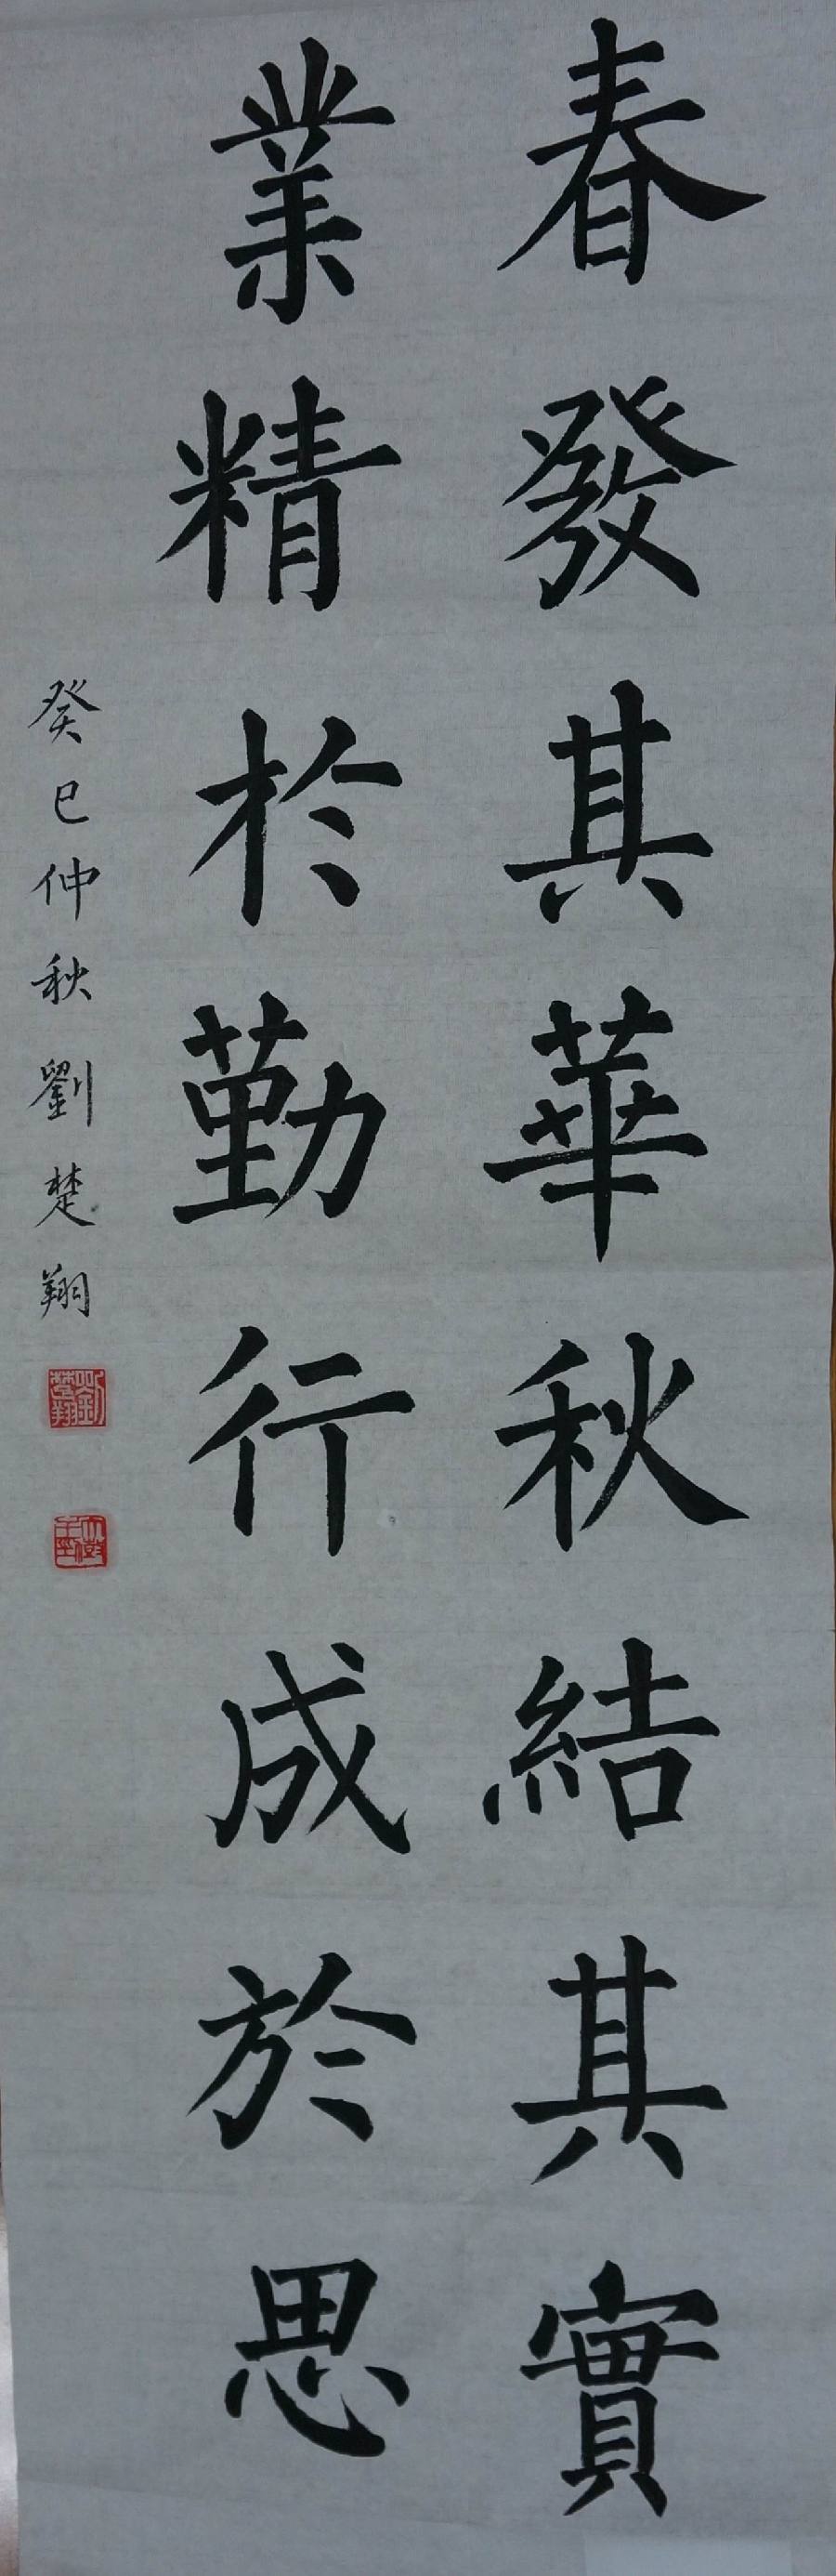 春發其華秋結其實
業精於勤行成於思
癸巳仲秋劉楚翔
劉楚翔